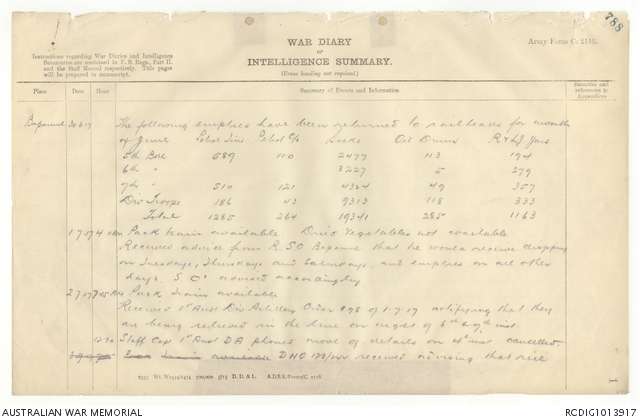 788
WAR DIARY
or
INTELLIGENCE SUMMARY.
(Erase heading not required.)
Army Form C. 2118.
Instructions regarding War Diaries and Intelligence
Summaries are contained in F. S. Regs., Part II.
and the Staff Manual respectively. Title pages
will be prepared in manuscript.
Place Date Hour Summary of Events and Information Remarks and references to Appendices
Bapaume 30 6 17 The following empties have been returned to railheads for month
of June Petrol Tins Petrol C/s Sacks Oil Drums R & Jars
5th Bde 589 110 2477 113 194
6th " 3227 5 279
7th " 510 121 4324 49 357
Div Troops 186 43 9313 118 333
Total 1285 264 19341 285 1163
1 7 17 Pack train available Dried Vegetables not available
Received advice from R.S.O Bapaume that he would receive
on Tuesdays, Thursdays and Saturdays, and empties on all other
days. S.O's advised accordingly
2 7 17 Pack train available
Received 1st Aust Div Artillery Order 98 of 1.7.17 notifying that they
are being relieved in the line on night of
Staff Capt 1st Aust DA phones move of details on 4th inst cancelled
received advising that rice
AUSTRALIAN WAR MEMORIAL
RCDIG1013917